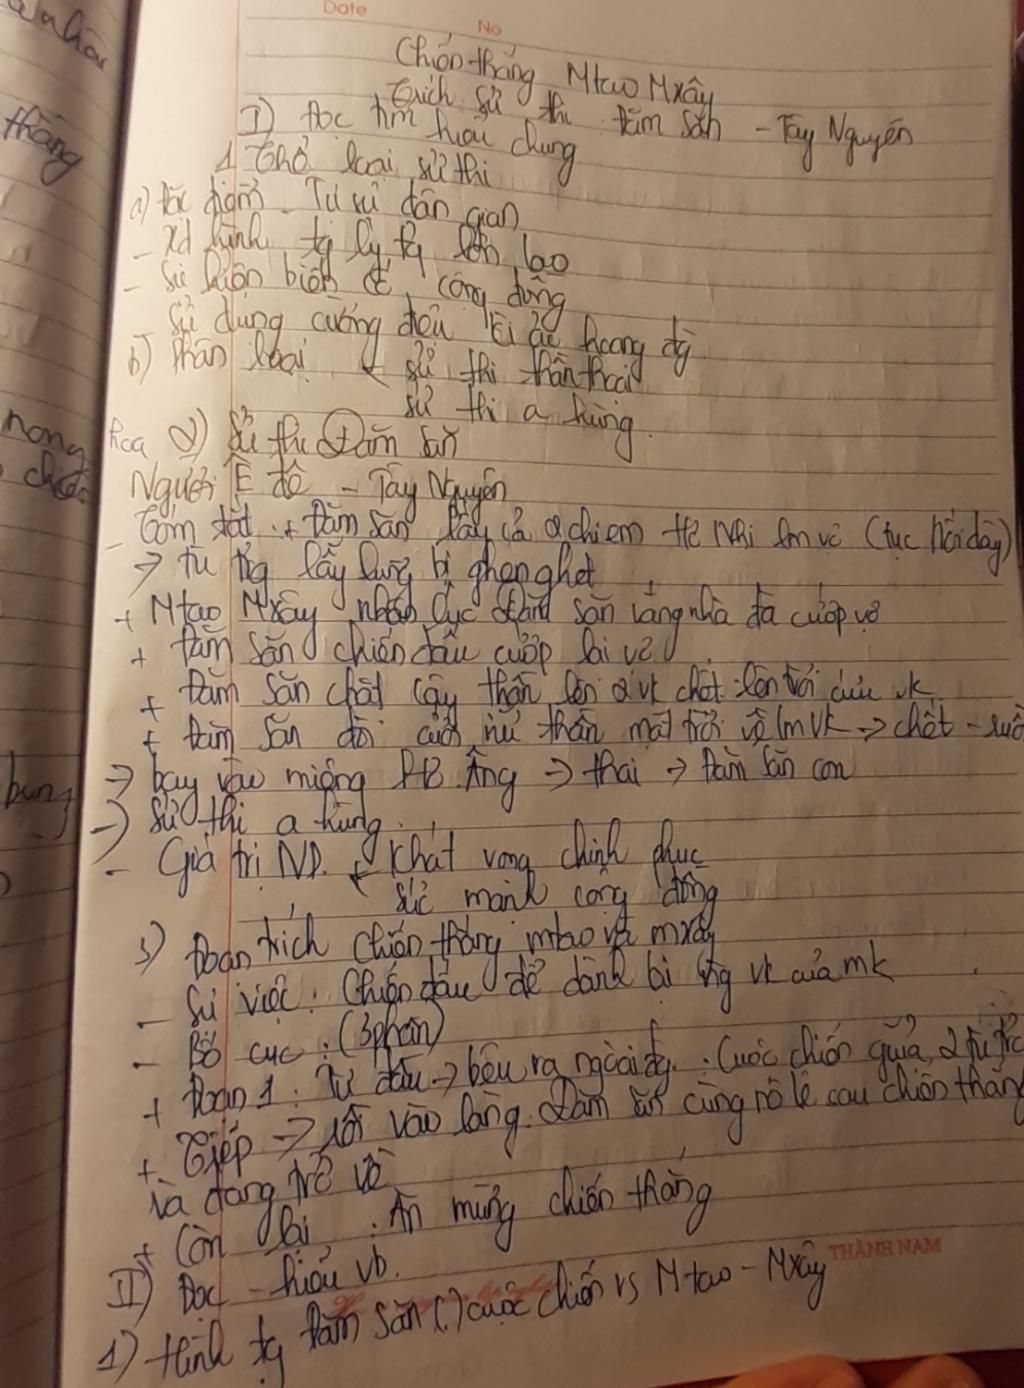 Date
No
Chiến thắng Mtao Mxây
trích sử thi Đăm Săn - Tây Nguyên
I) Đọc tìm hiểu chung
1. Thể loại sử thi
a) Đặc điểm - Tự sự dân gian
- Xd hình tg lý tg lớn lao
- Sự kiện biến cố cộng đồng
Sử dụng cường điệu
b) Phân loại sử thi thần thoại
sử thi a hùng.
2) Sử thi Đăm Săn
Người Ê đê - Tây Nguyên
- Tóm tắt + Đăm Săn lấy cả 2 chị em Hơ Nhị làm vợ (tục nối dây)
→ Tù trg lẫy lừng bị ghen ghét
+ Mtao Mxây nhân lúc Đăm Săn vắng nhà đã cướp vợ
+ Đăm Săn chiến đấu cướp lại vợ
+ Đăm Săn chặt cây thần lên 2 vk chết lên trời cứu vk
+ Đăm Săn đòi cưới nữ thần mặt trời về lm vk → chết -
→ bay vào miệng Âng → thai → Đăm Săn con
→ Sử thi a hùng.
- Giá trị ND. Khát vọng chinh phục
sức mạnh cộng đồng
3) Đoạn trích chiến thắng mtao và mxây
- Sự việc: Chiến đấu để dành lại vk của mk
- Bố cục: (3 phần)
+ Đoạn 1: Từ đầu → bêu ra ngoài đg: Cuộc chiến giữa 2 tù
+ Tiếp → rồi vào làng. Đăm Săn cùng nô lệ sau chiến thắng
và đang trở về
+ Còn lại: Ăn mừng chiến thắng
THÀNH NAM
II) Đọc - hiểu vb.
1) Hình tg Đăm Săn (.) cuộc chiến vs Mtao - Mxây